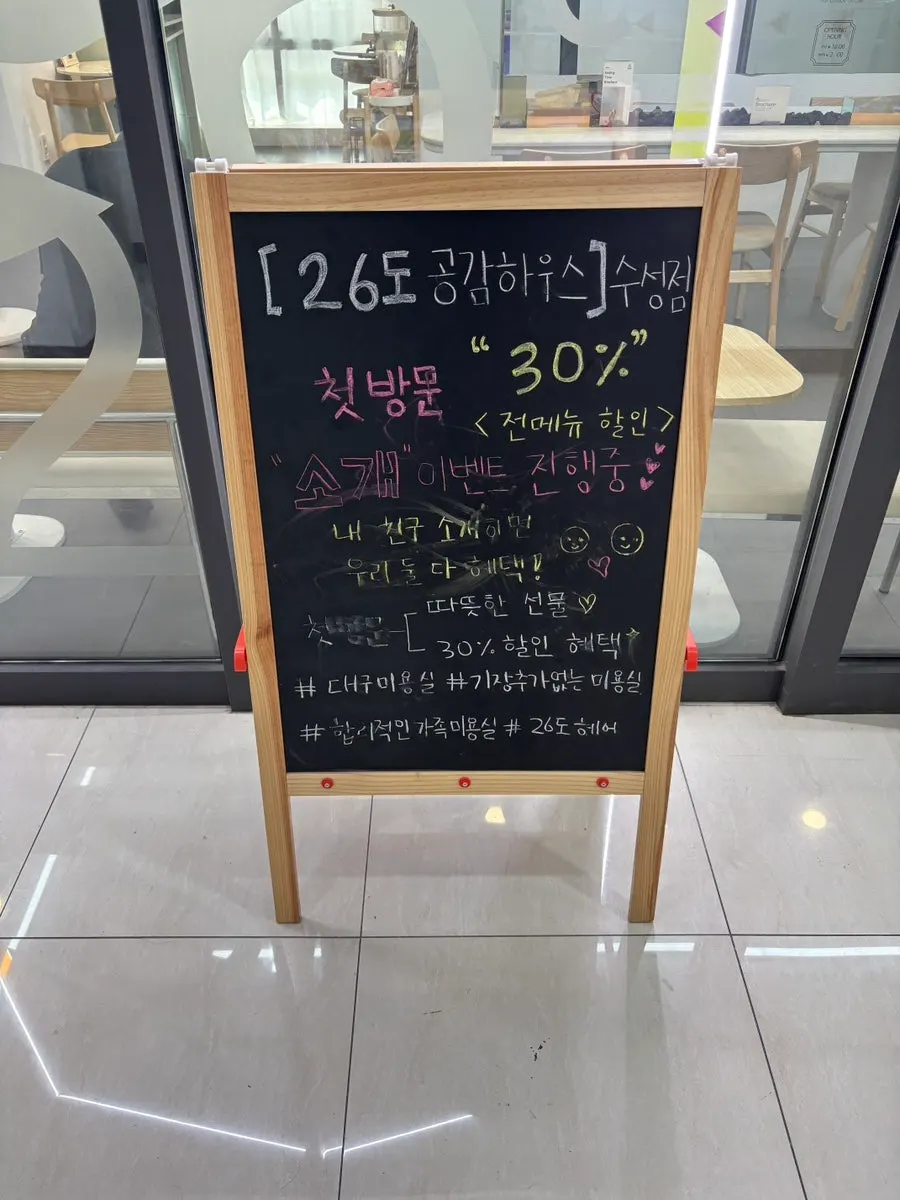 [26도 공감하우스] 수성점
첫방문 "30%"
<전메뉴 할인>
"소개" 이벤트 진행중
내 친구 소개하면
우리 둘 다 혜택!
첫방문 - [ 따뜻한 선물
30% 할인 혜택
# 대구미용실 #기장추가없는 미용실
# 합리적인가족미용실 # 26도헤어
OPENING
HOUR